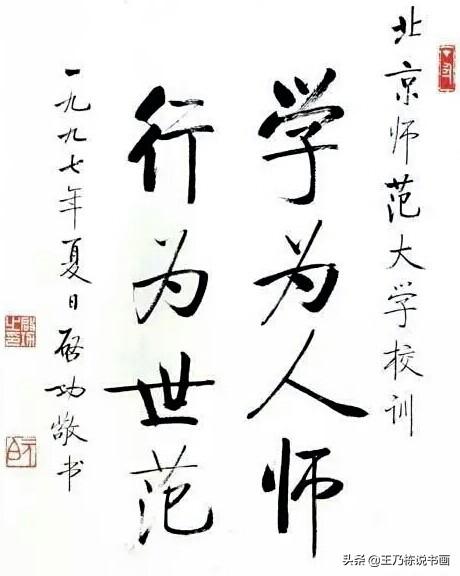 北京师范大学校训
学为人师
行为世范
一九九七年夏日启功敬书
头条@王乃栋说书画